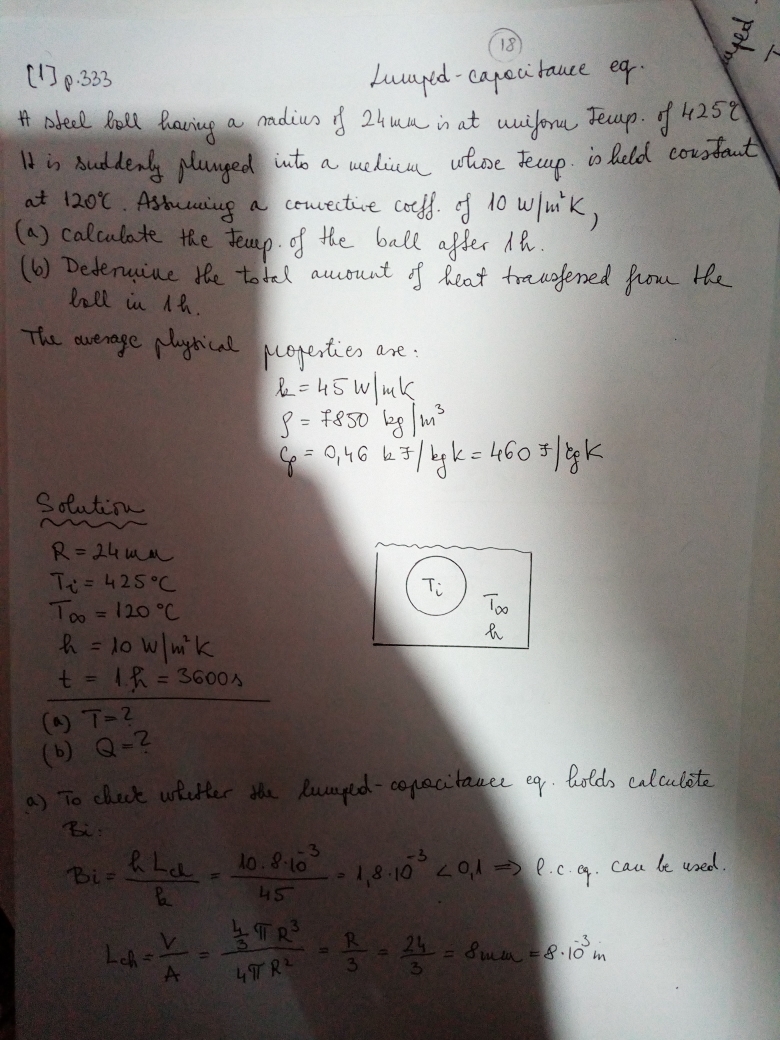 18
[1] p.333
Lumped-capacitance eq.
A steel ball having a radius of 24mm is at uniform temp. of 425°C
It is suddenly plunged into a medium whose temp. is held constant
at 120°C. Assuming a convective coeff. of 10 W/m²K,
(a) calculate the temp. of the ball after 1h.
(b) Determine the total amount of heat transferred from the
ball in 1h.
The average physical properties are:
k = 45 W/mK
ρ = 7850 kg/m³
Cp = 0,46 kJ/kgK = 460 J/kgK
Solution
R = 24mm
Ti = 425°C
T∞ = 120°C
h = 10 W/m²K
t = 1h = 3600s
(a) T=?
(b) Q=?
Ti
T∞
h
a) To check whether the lumped-capacitance eq. holds calculate
Bi:
Bi = h Lch / k = 10·8·10⁻³ / 45 = 1,8·10⁻³ < 0,1 ⇒ l.c.eq. can be used.
Lch = V / A = 4/3 π R³ / 4πR² = R / 3 = 24 / 3 = 8mm = 8·10⁻³ m